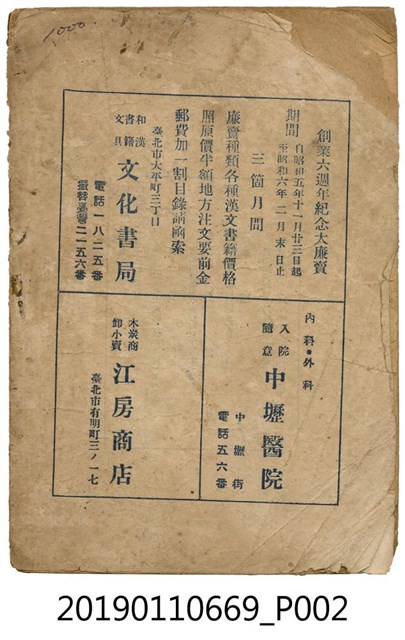 1000
創業六週年紀念大廉賣
期間 自昭和五年十一月廿三日起
至昭和六年二月末日止
三箇月間
廉賣種類各種漢文書籍價格
照原價半額地方注文要前金
郵費加一割目錄請函索
臺北市太平町三丁目
和漢
書籍
文具
文化書局
電話一八二五番
振替臺灣二一五六番
內科・外科
入院
隨意
中壢醫院
中壢街
電話五六番
木炭商
卸小賣
江房商店
臺北市有明町三ノ一七
20190110669_P002